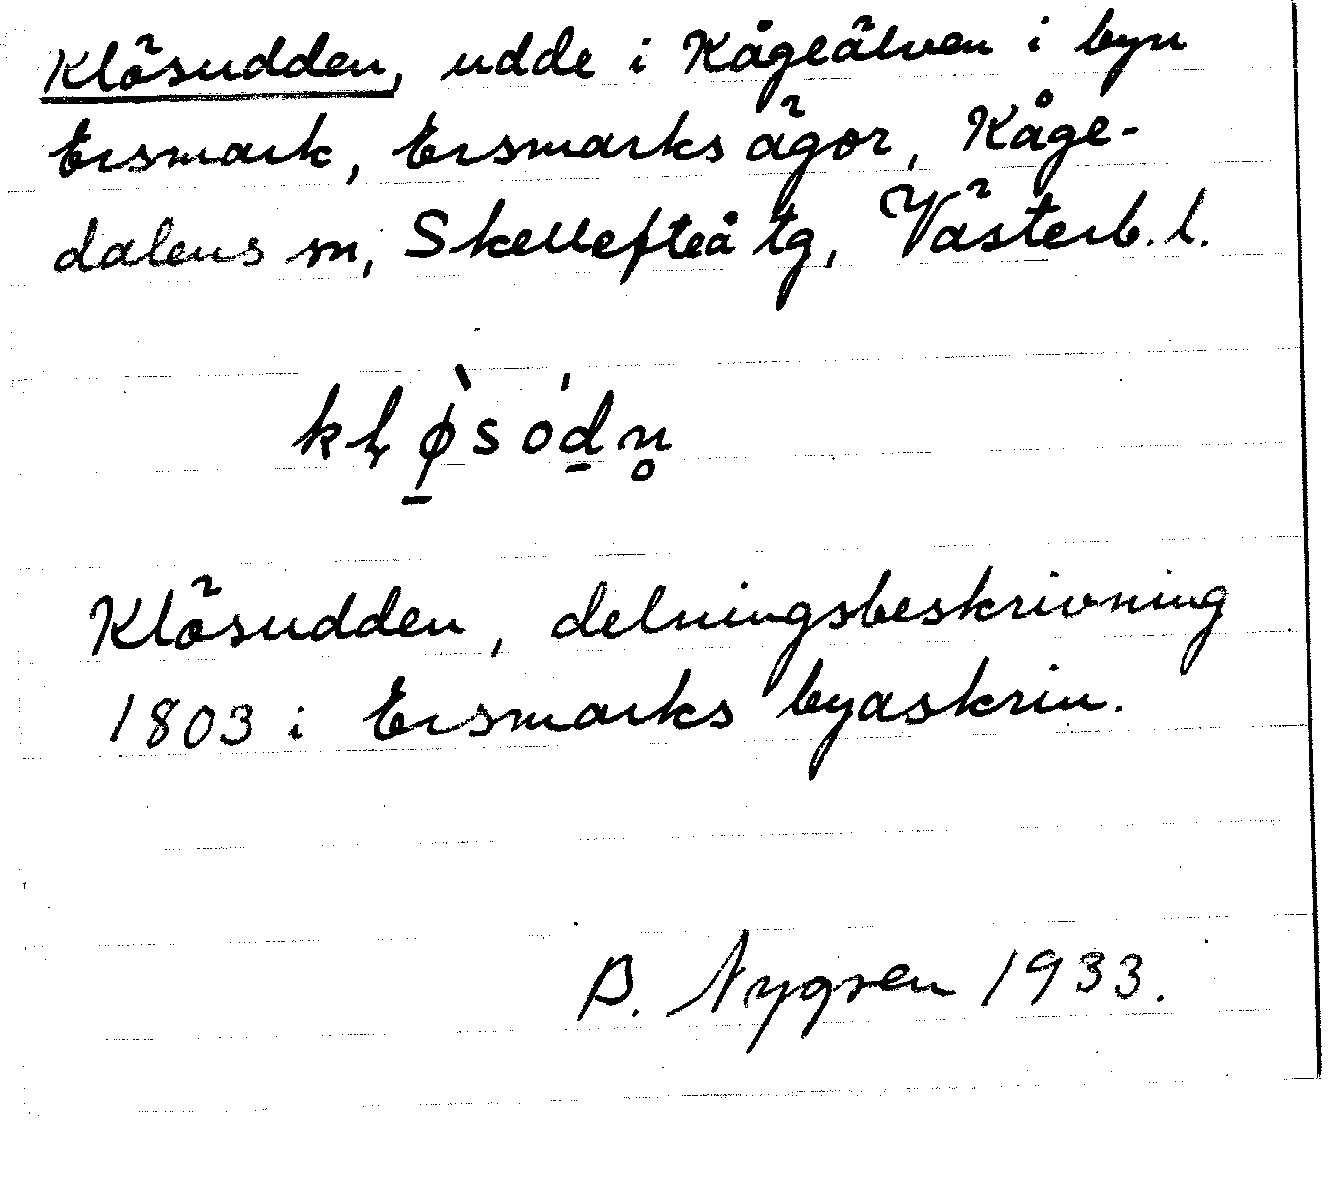 Klösudden, udde i Kågeälven i byn
Ersmark, Ersmarks ägor, Kåge-
dalens sn, Skellefteå tg, Västerb. l.
kḷø̠̀só̠dn̥
Klösudden, delningsbeskrivning
1803 i Ersmarks byaskrin.
B. Nygren 1933.